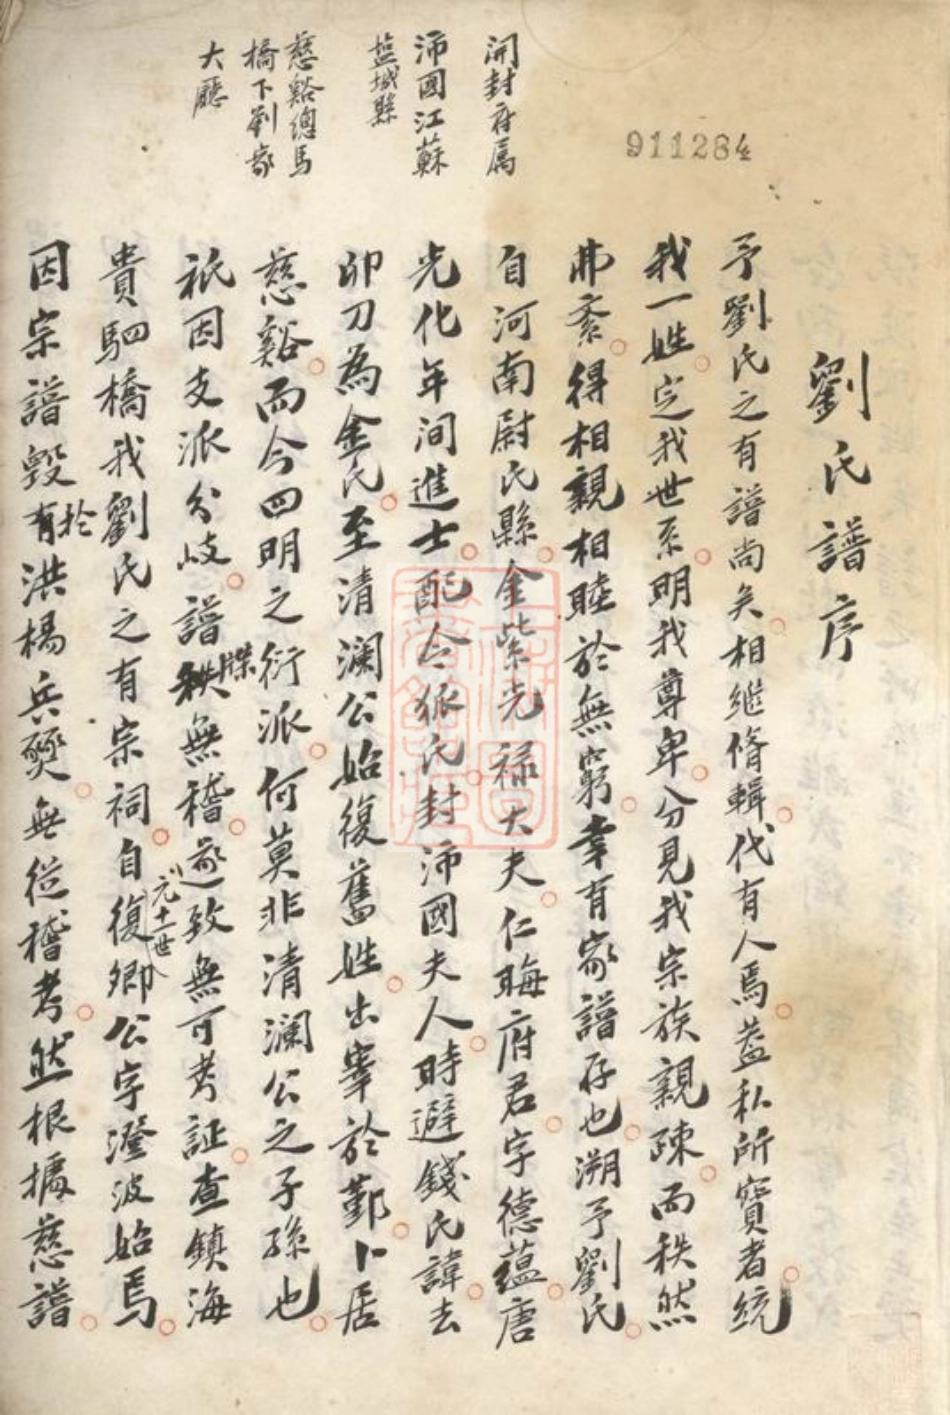 911284
開封府属
沛國江蘇
盐城縣
慈谿總馬
橋下劉家
大廳
劉氏譜序
予劉氏之有譜尚矣相繼脩輯代有人焉蓋私所寶者統
我一姓定我世系明我尊卑分見我宗族親疎而秩然
弗紊得相親相睦於無窮幸有家譜存也溯予劉氏
自河南尉氏縣金紫光禄大夫仁晦府君字德蕴唐
光化年间進士配令狐氏封沛國夫人時避錢氏諱去
卯刀為金氏至清瀾公始復舊姓出宰於鄞卜居
慈谿而今四明之衍派何莫非清瀾公之子孫也
祇因支派分歧譜牒無稽遂致無可考証查鎮海
貴駟橋我劉氏之有宗祠自元十一世復卿公字澄波始焉
因宗譜毀於有洪楊兵燹無從稽考然根據慈譜